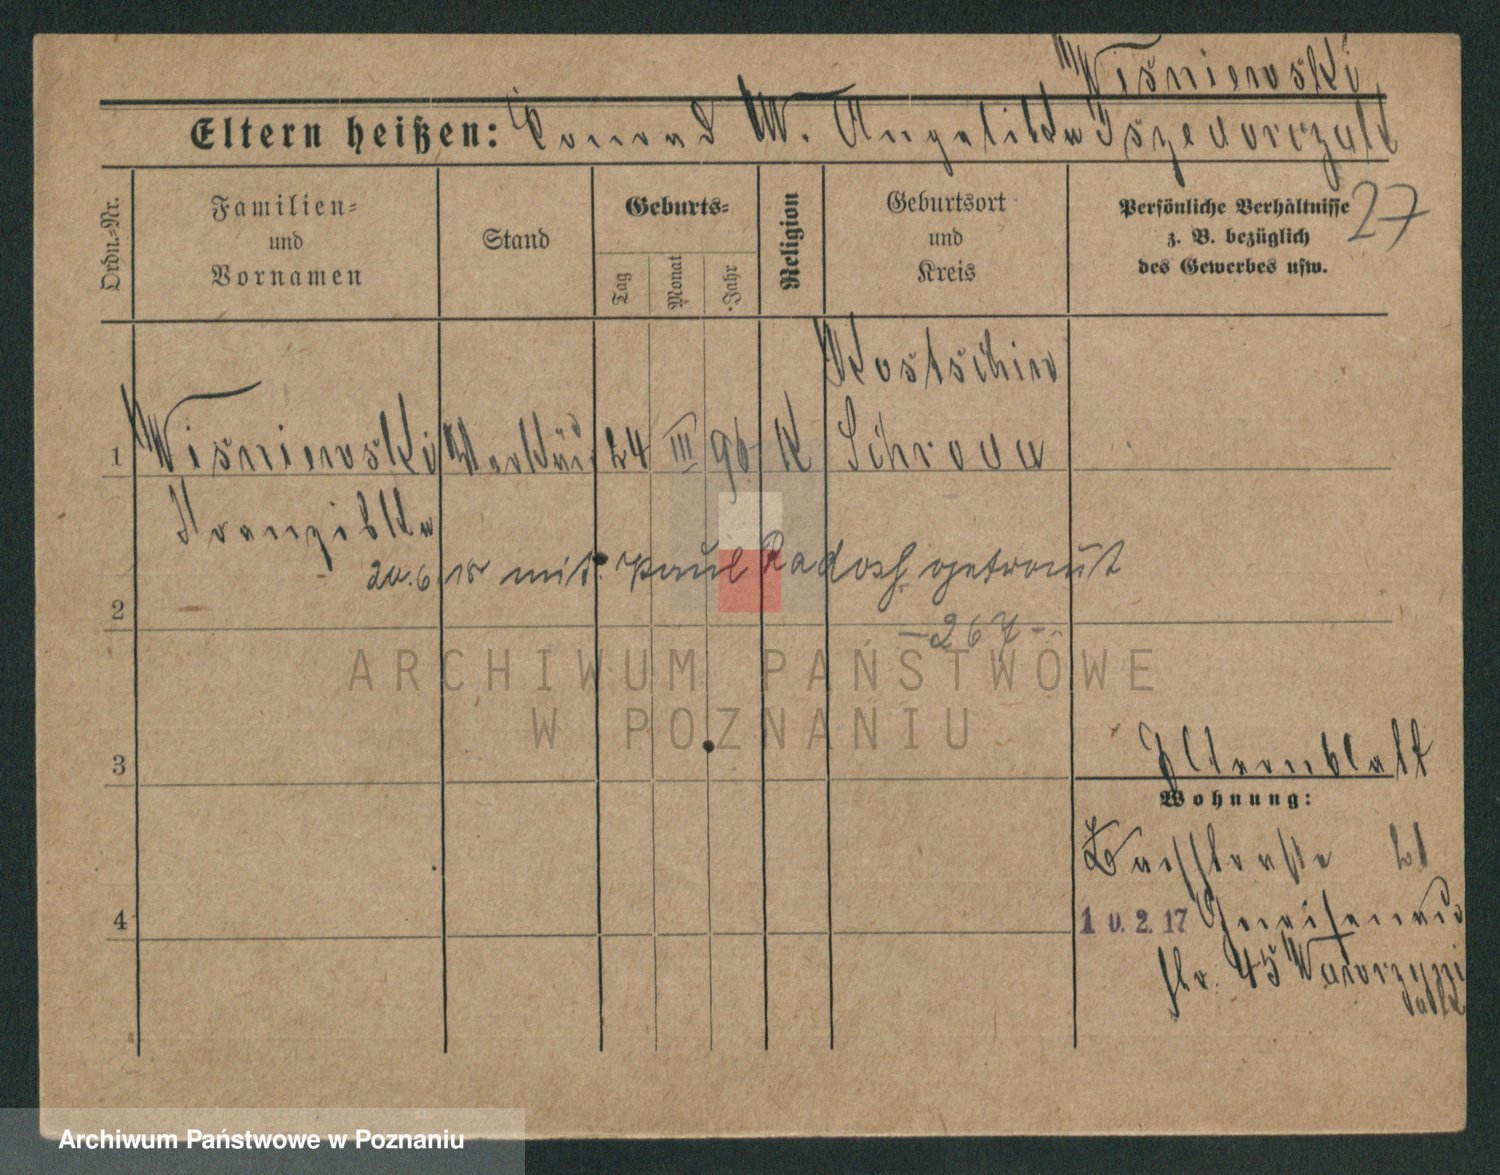 Wiśniewski
Eltern heißen: Konrad W. Angelika
27
Ordn.-Nr.
Familien- und Vornamen
Stand
Geburts-
Tag
Monat
Jahr
Religion
Geburtsort und Kreis
Persönliche Verhältnisse
z. B. bezüglich
des Gewerbes usw.
Kostschin
1 Wiśniewski 24 III 96 K Schroda
Franziska
20.6.18 mit Paul Radosh getraut
2
-267-
ARCHIWUM PAŃSTWOWE
W POZNANIU
3
Elternblatt
Wohnung:
Bachstraße 21
4
10.2.17 Gneisenau
str. 45 Wawrzyn
Archiwum Państwowe w Poznaniu